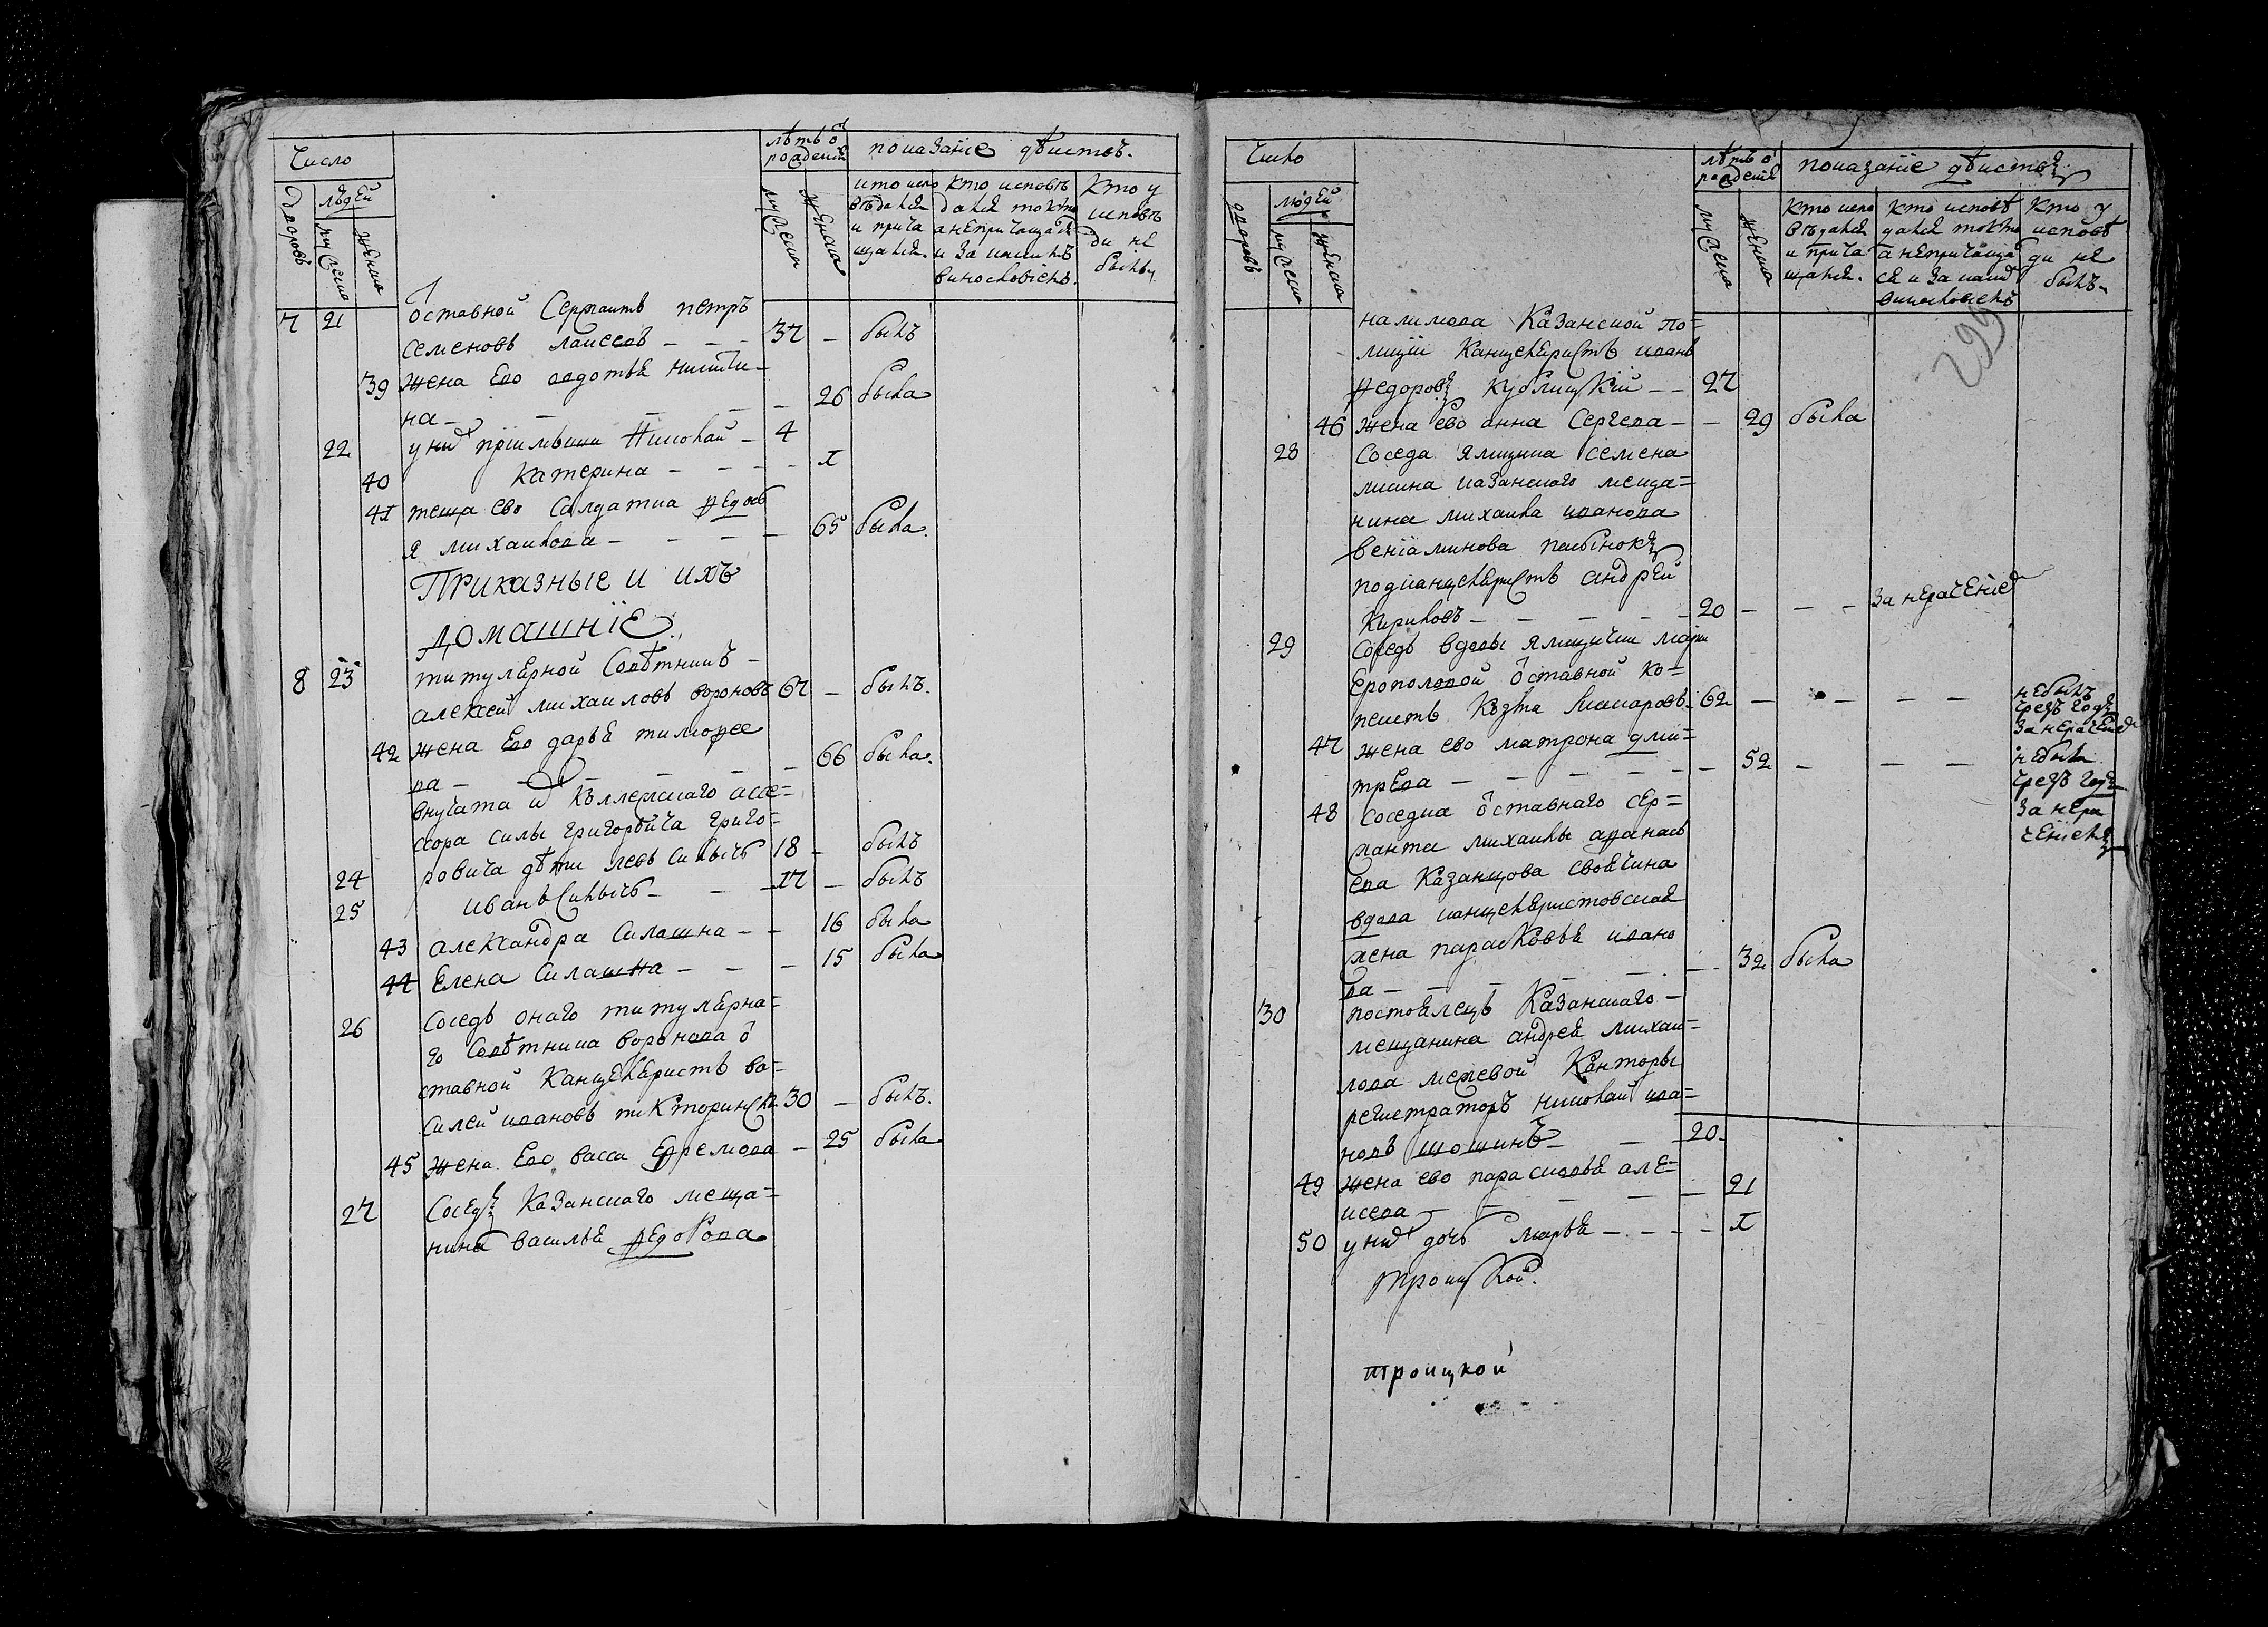 Число
лѣтъ о
рождениѧ
показание дѣиствъ.
дворовъ
людей
мужеска
женска
мужеска
женска
кто испо
вѣдался
и прича
щался.
кто исповѣ
дался токмо
а непричащался
и за каким
винословіемъ.
кто у
исповѣ
ди не
былъ
7 21 отставной Сержантъ петръ
Семеновъ 37 – былъ
39 жена Ево авдотья никити-
на – – – – 26 была
22 у них приимыши Николай – 4
40 Катерина – – – – 1
41 теща ево Салдатка Федось
я михаилова – – – – 65 была.
Приказные и ихъ
домашніе.
8 23 титулярной Совѣтникъ –
алексей михаиловъ вороновъ 67 – былъ.
42 жена Ево дарья тимофее
ва – – – – – 66 была.
внучата и коллежскаго ассе=
сора силы григорьича григо=
24 ровича дѣти левъ Силычъ 18 – былъ
25 иванъ Силычъ – – – 17 – былъ
43 александра Силашна – – 16 была
44 Елена Силашна – – – 15 была
26 Соседъ онаго титулярна=
го Совѣтника воронова о
ставной Канцеляристъ ва=
силей ивановъ 30 – былъ.
45 жена Ево васса Ефремова – 25 была
27 Соседъ Казанскаго меща=
нина василья Федорова
Число
лѣтъ о
рождениѧ
показаніе дѣиствъ
дворовъ
людей
мужеска
женска
мужеска
женска
кто испо
вѣдался
и прича
щался.
кто исповѣ
дался токмо
а непричаща
ся и за каким
винословіемъ
кто у
исповѣ
ди не
былъ.
299
налимова Казанской по=
лиціи Канцеляристъ иванъ
Федоровъ Кублицкій – – 27
46 жена ево анна Сергеева – – 29 была
28 Соседа ямщика семена
лисина казанскаго меща=
нина михаила иванова
веніаминова пасынокъ
подканцеляристъ андрей
Кириловъ – – – – – 20 – – – За нераченіе
29 Соседъ вдовы ямщички марьи
Ерополовой отставной ко=
пеистъ Козма Макаровъ 62 – – – –
небылъ
чрезъ годъ
За нерачение
47 жена ево матрона дми=
трева – – – – – – 52 – – –
небыла
чрезъ годъ
За нера
чениемъ
48 Соседка отставнаго сер=
жанта михаилы афанась
ева Казанцова своячина
вдова канцеляристовская
жена парасковья ивано
ва – – – – – – 32 была
30 постоялецъ Казанскаго –
мещанина андрея михаи=
лова межевой Канторы
регистраторъ николай ива=
новъ шошинъ – – – 20.
49 жена ево парасковья але=
исеева – – – – – 21
50 у них дочь марья – – – – 1
троицкой.
троицкой